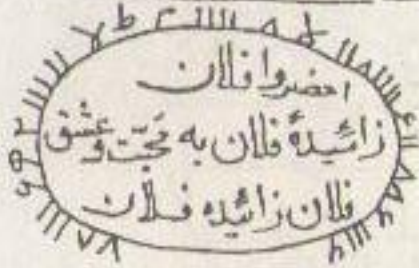 احضروا فلان
زائیدهٔ فلان به محبّت و عشق
فلان زائیده فلان